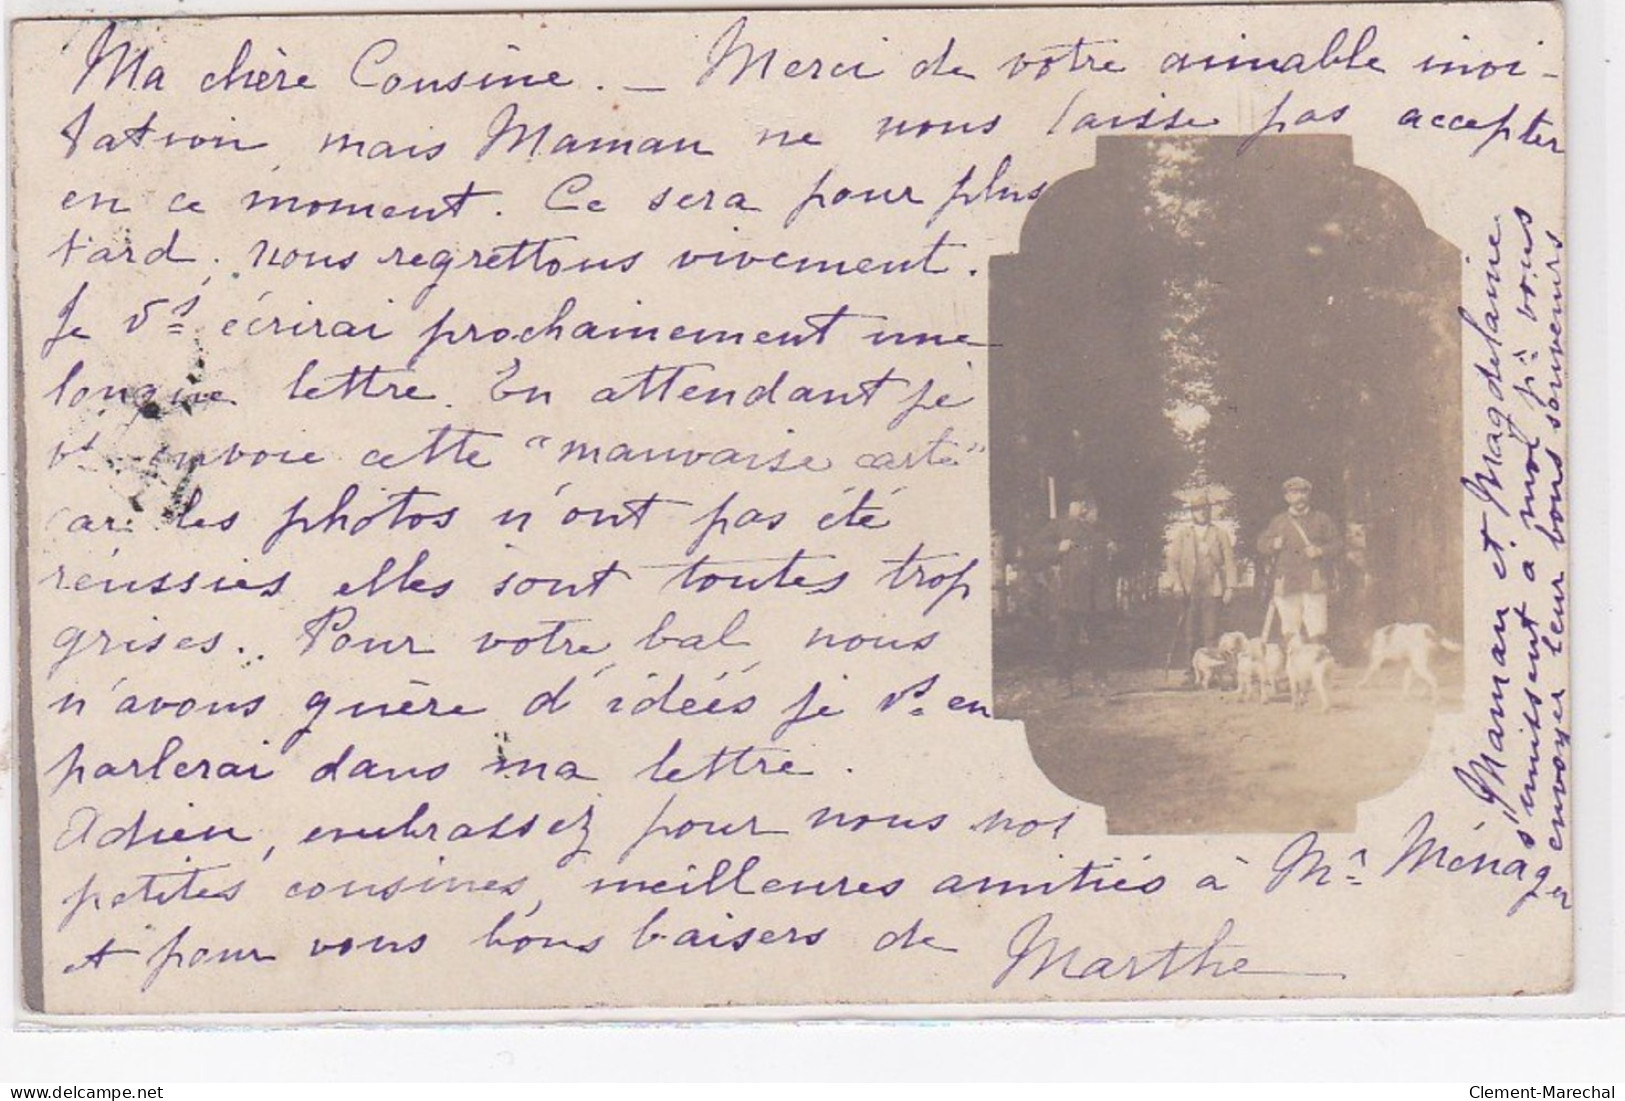 Ma chère Cousine. — Merci de votre aimable invi-
tation mais Maman ne nous laisse pas accepter
en ce moment. Ce sera pour plus
tard, nous regrettons vivement.
Je vs écrirai prochainement une
longue lettre. En attendant je
vs envoie cette "mauvaise carte"
car les photos n'ont pas été
réussies elles sont toutes trop
grises. Pour votre bal nous
n'avons guère d'idées je vs en
parlerai dans ma lettre.
Adieu, embrassez pour nous nos
petites cousines, meilleures amitiés à Mr Ménager
et pour vous bons baisers de Marthe
Maman et Magdelaine
s'unissent à moi pr vous
envoyer leur bons souvenirs
www.delcampe.net
Clement-Marechal